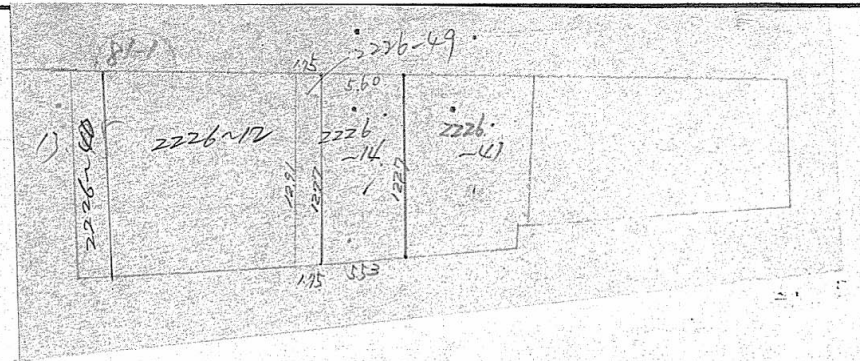 2226-49
1.75
5.60
2226-40
2226~12
12.91
12.77
2226
-14
12.27
2226
-41
1.75
5.53